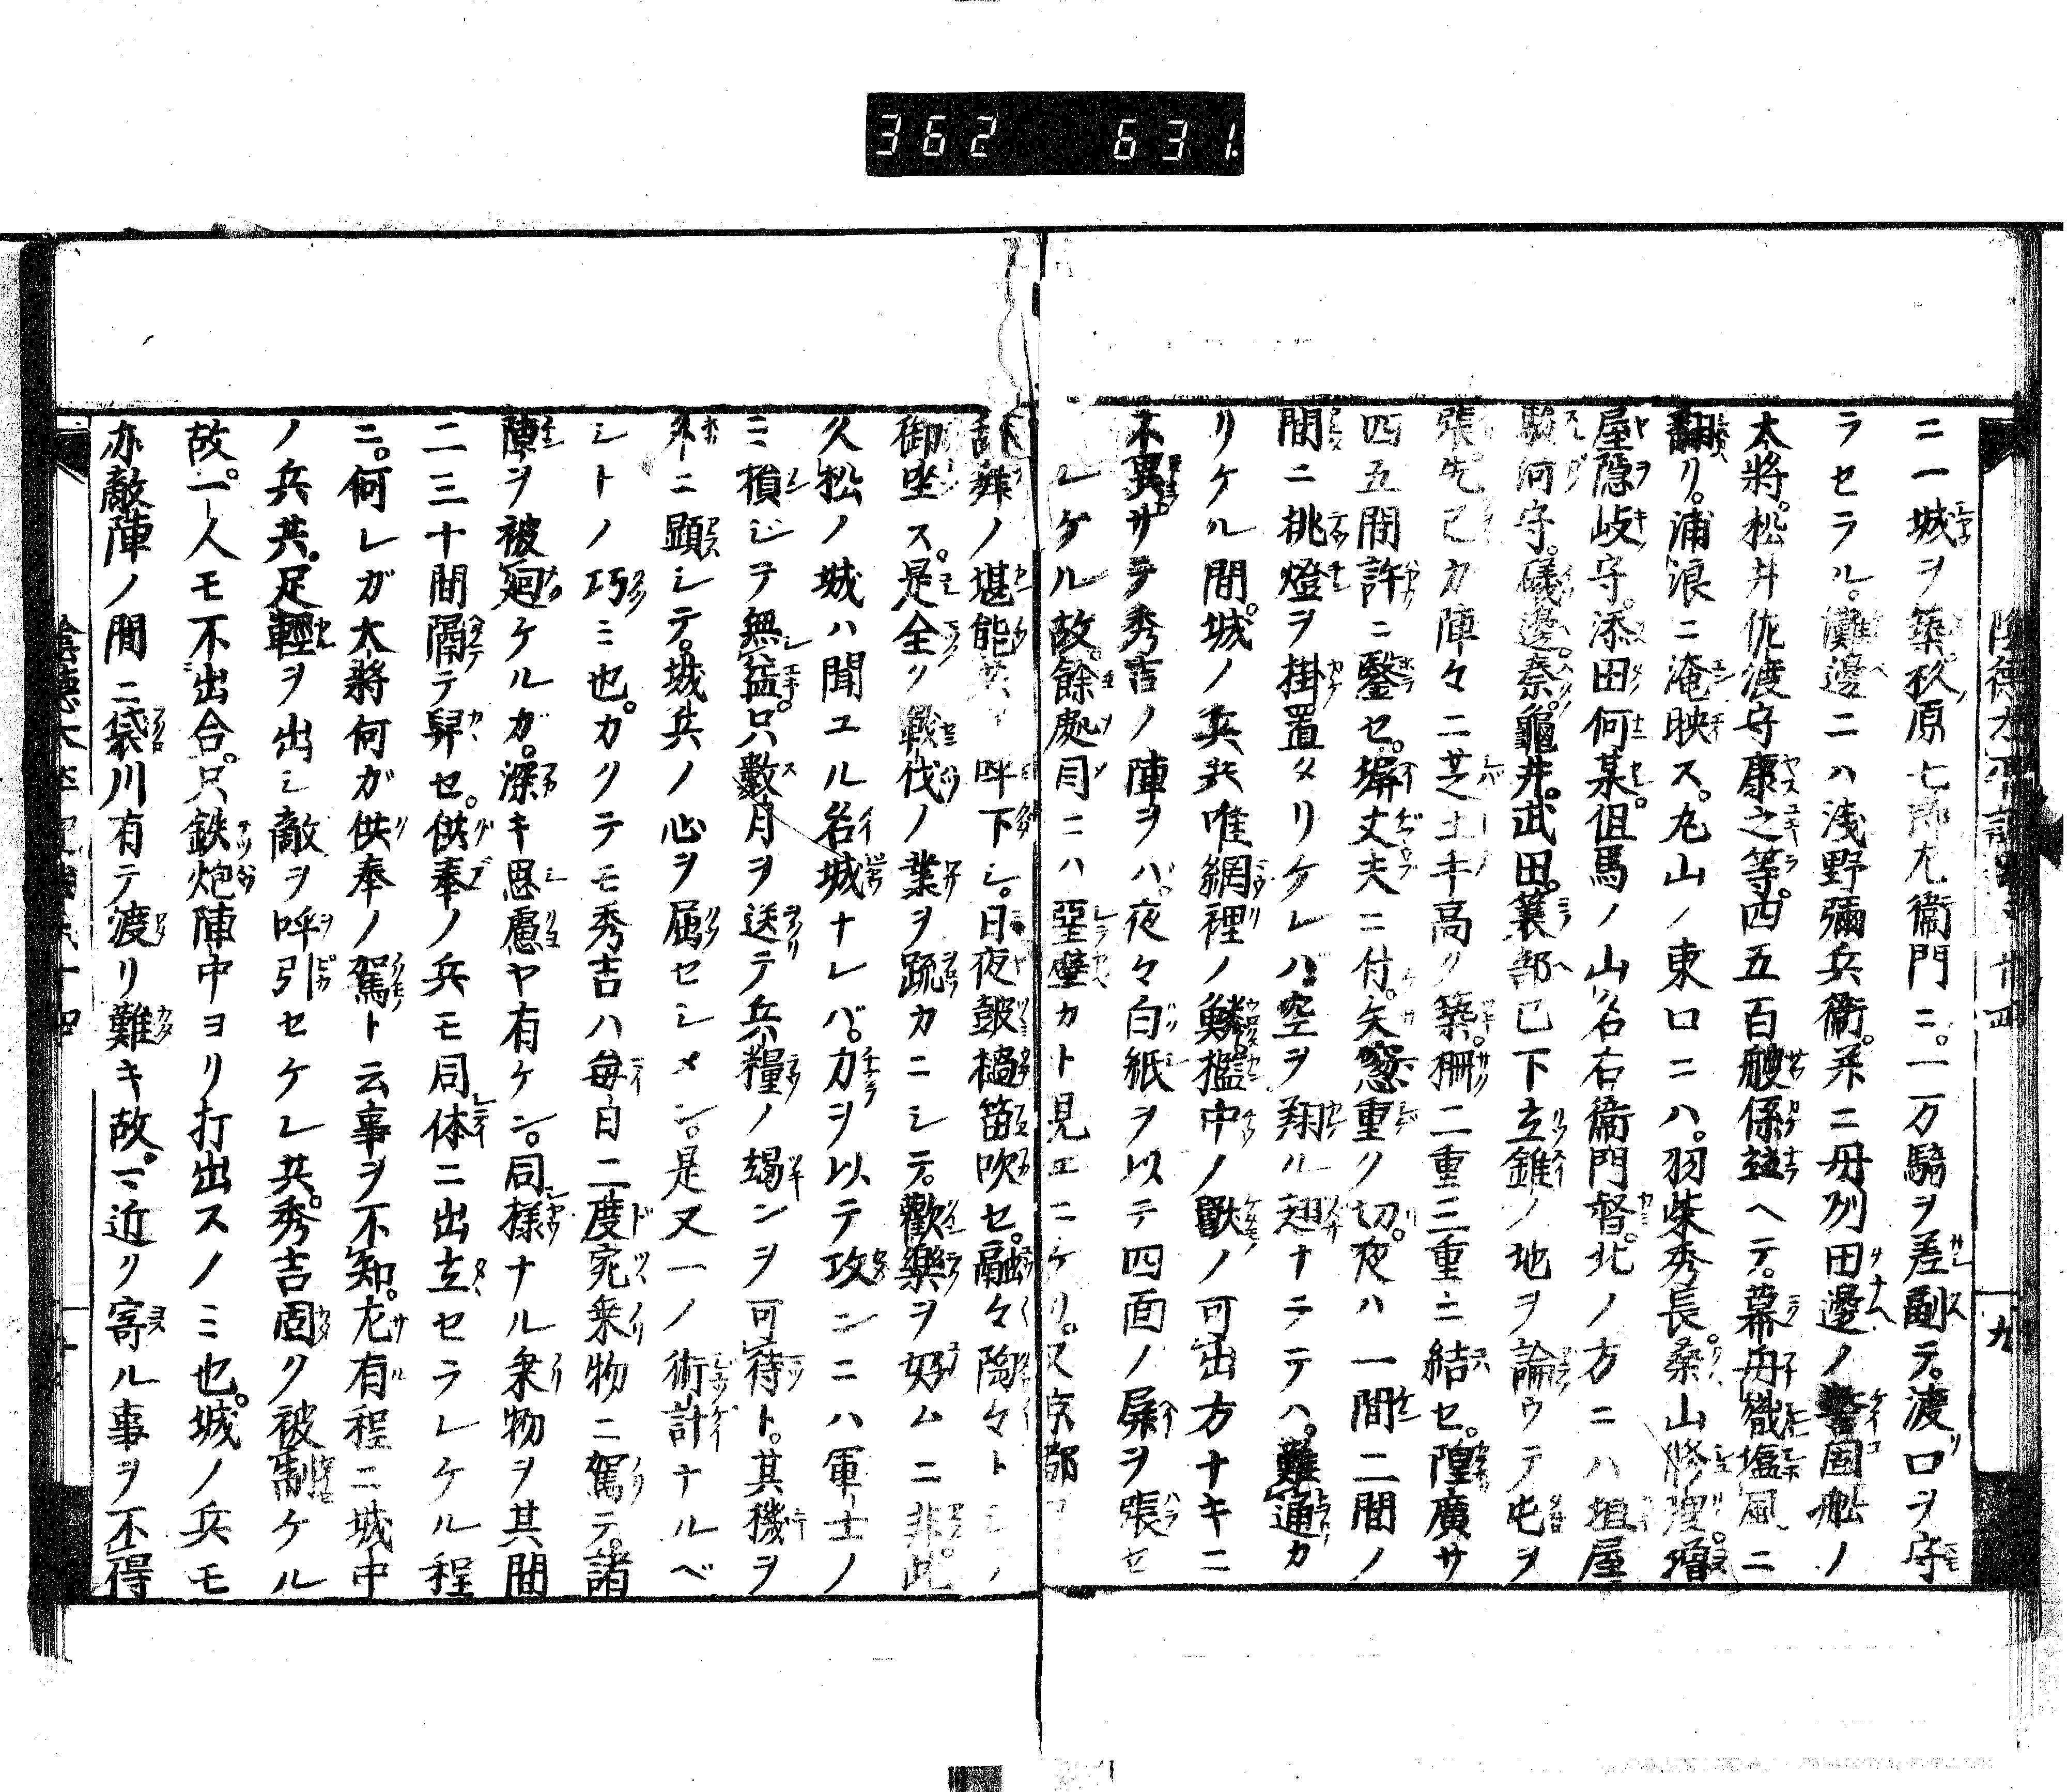 362 631.
ニ一城ヲ築。秋原七郎左衛門ニ。一万騎ヲ差副テ。渡口ヲ守
ラセラル。灘邊ニハ浅野彌兵衛。并ニ丹州田邊ノ警固舩ノ
大將。松井佐渡守康之等。四五百艘係並ヘテ。幕舟幟塩風ニ
翻リ。浦浪ニ淹映ス。丸山ノ東口ニハ。羽柴秀長。桑山修理。増
屋隠岐守。添田何某。但馬ノ山名右衛門督。北ノ方ニハ垣屋
駿河守。礒邊。奈。龜井。武田。簔部已下立錐ノ地ヲ論ウテ屯ヲ
張。先己カ陣々ニ芝土手高ク築。柵二重三重ニ結セ。隍廣サ
四五間許ニ鑿セ。塀丈夫ニ付。矢窓重ク切。夜ハ一間二間ノ
間ニ挑燈ヲ掛置タリケレハ。空ヲ翔ル翅ナラテハ。難通カ
リケル間。城ノ兵共唯網裡ノ鱗。檻中ノ獸ノ可出方ナキニ
不異サテ秀吉ノ陣ヲバ。夜々白紙ヲ以テ四面ノ屏ヲ張セ
レケル故。餘處目ニハ堊壁カト見エニケリ。又京都ヨリ
歌舞ノ堪能共ヲ呼下シ。日夜皷檛笛吹セ。融々陶々トシテ
御坐ス。是全ク戦伐ノ業ヲ踈カニシテ。歡樂ヲ好ムニ非。此
久松ノ城ハ聞ユル名城ナレバ。力ヲ以テ攻ンニハ軍士ノ
ミ損ジヲ無益。只數月ヲ送テ兵糧ノ竭ンヲ可待ト。其機ヲ
外ニ顕シテ。城兵ノ心ヲ屈セシメン。是又一ノ術計ナルベ
シトノ巧ミ也。カクテモ秀吉ハ毎日二度宛乗物ニ駕テ。諸
陣ヲ被廻ケルガ。深キ思慮ヤ有ケン。同様ナル乗物ヲ其間
二三十間隔テ舁セ。供奉ノ兵モ同体ニ出立セラレケル程
ニ。何レガ大將何ガ供奉ノ駕ト云事ヲ不知。左有程ニ城中
ノ兵共。足輕ヲ出シ敵ヲ呼引セケレ共。秀吉固ク被制ケル
故。一人モ不出合。只鉄炮陣中ヨリ打出スノミ也。城ノ兵モ
亦敵陣ノ間ニ袋川有テ渡リ難キ故。マ近ク寄ル事ヲ不得